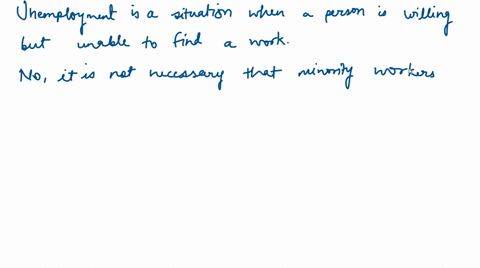 Unemployment is a situation when a person is willing
but unable to find a work.
No, it is not necessary that minority workers